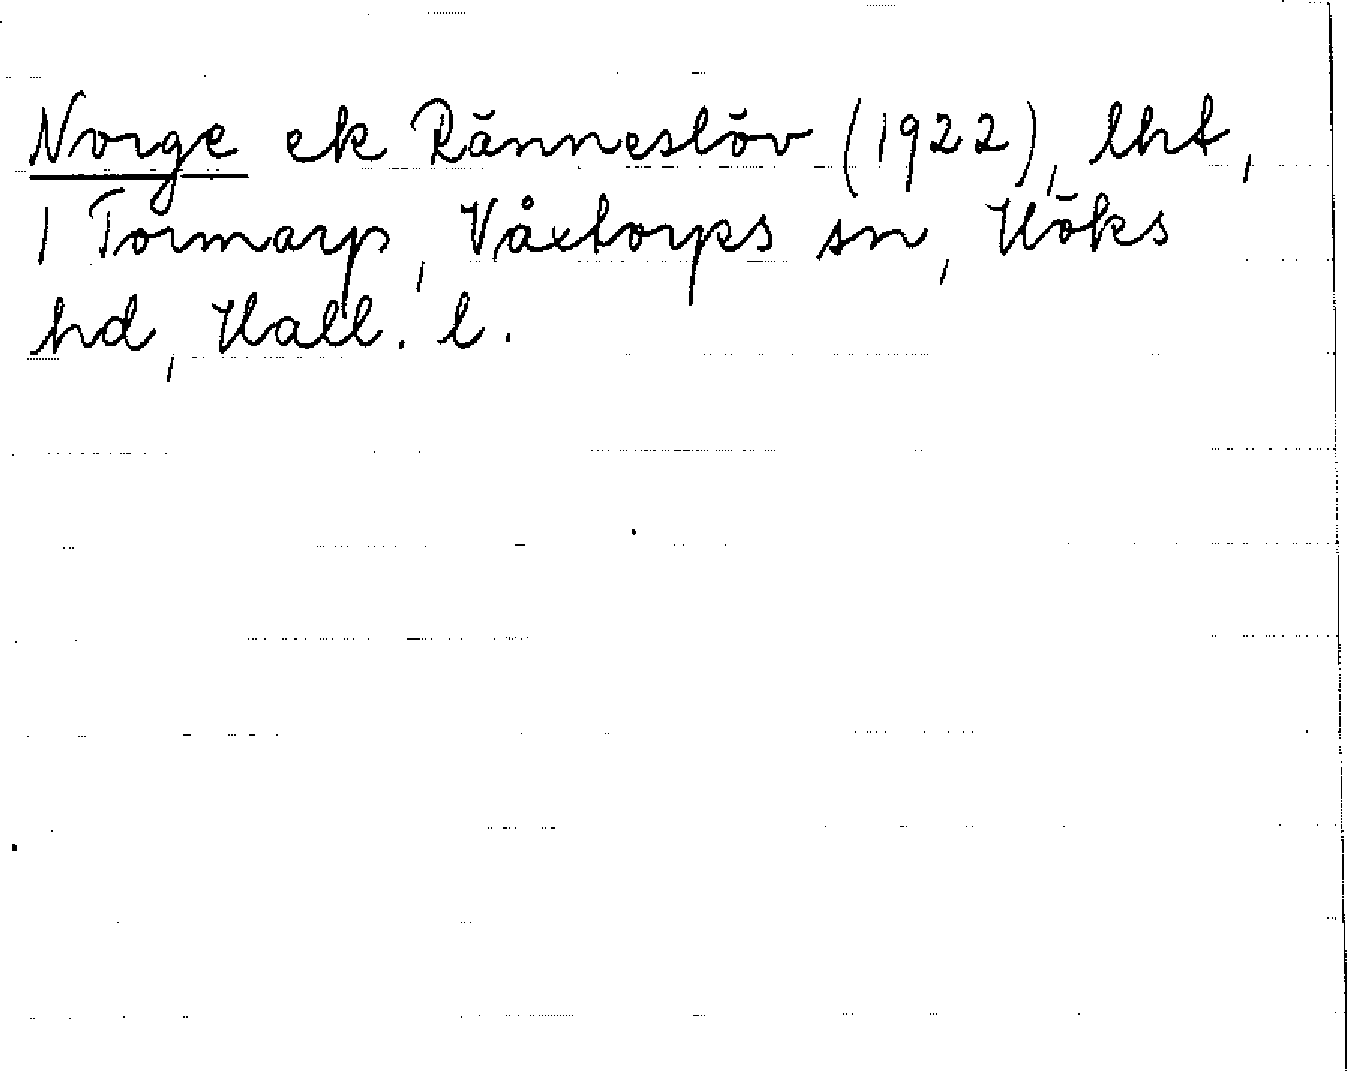 Norge ek Ränneslöv (1922), lht,
1 Tormarp, Våxtorps sn, Höks
hd, Hall. l.